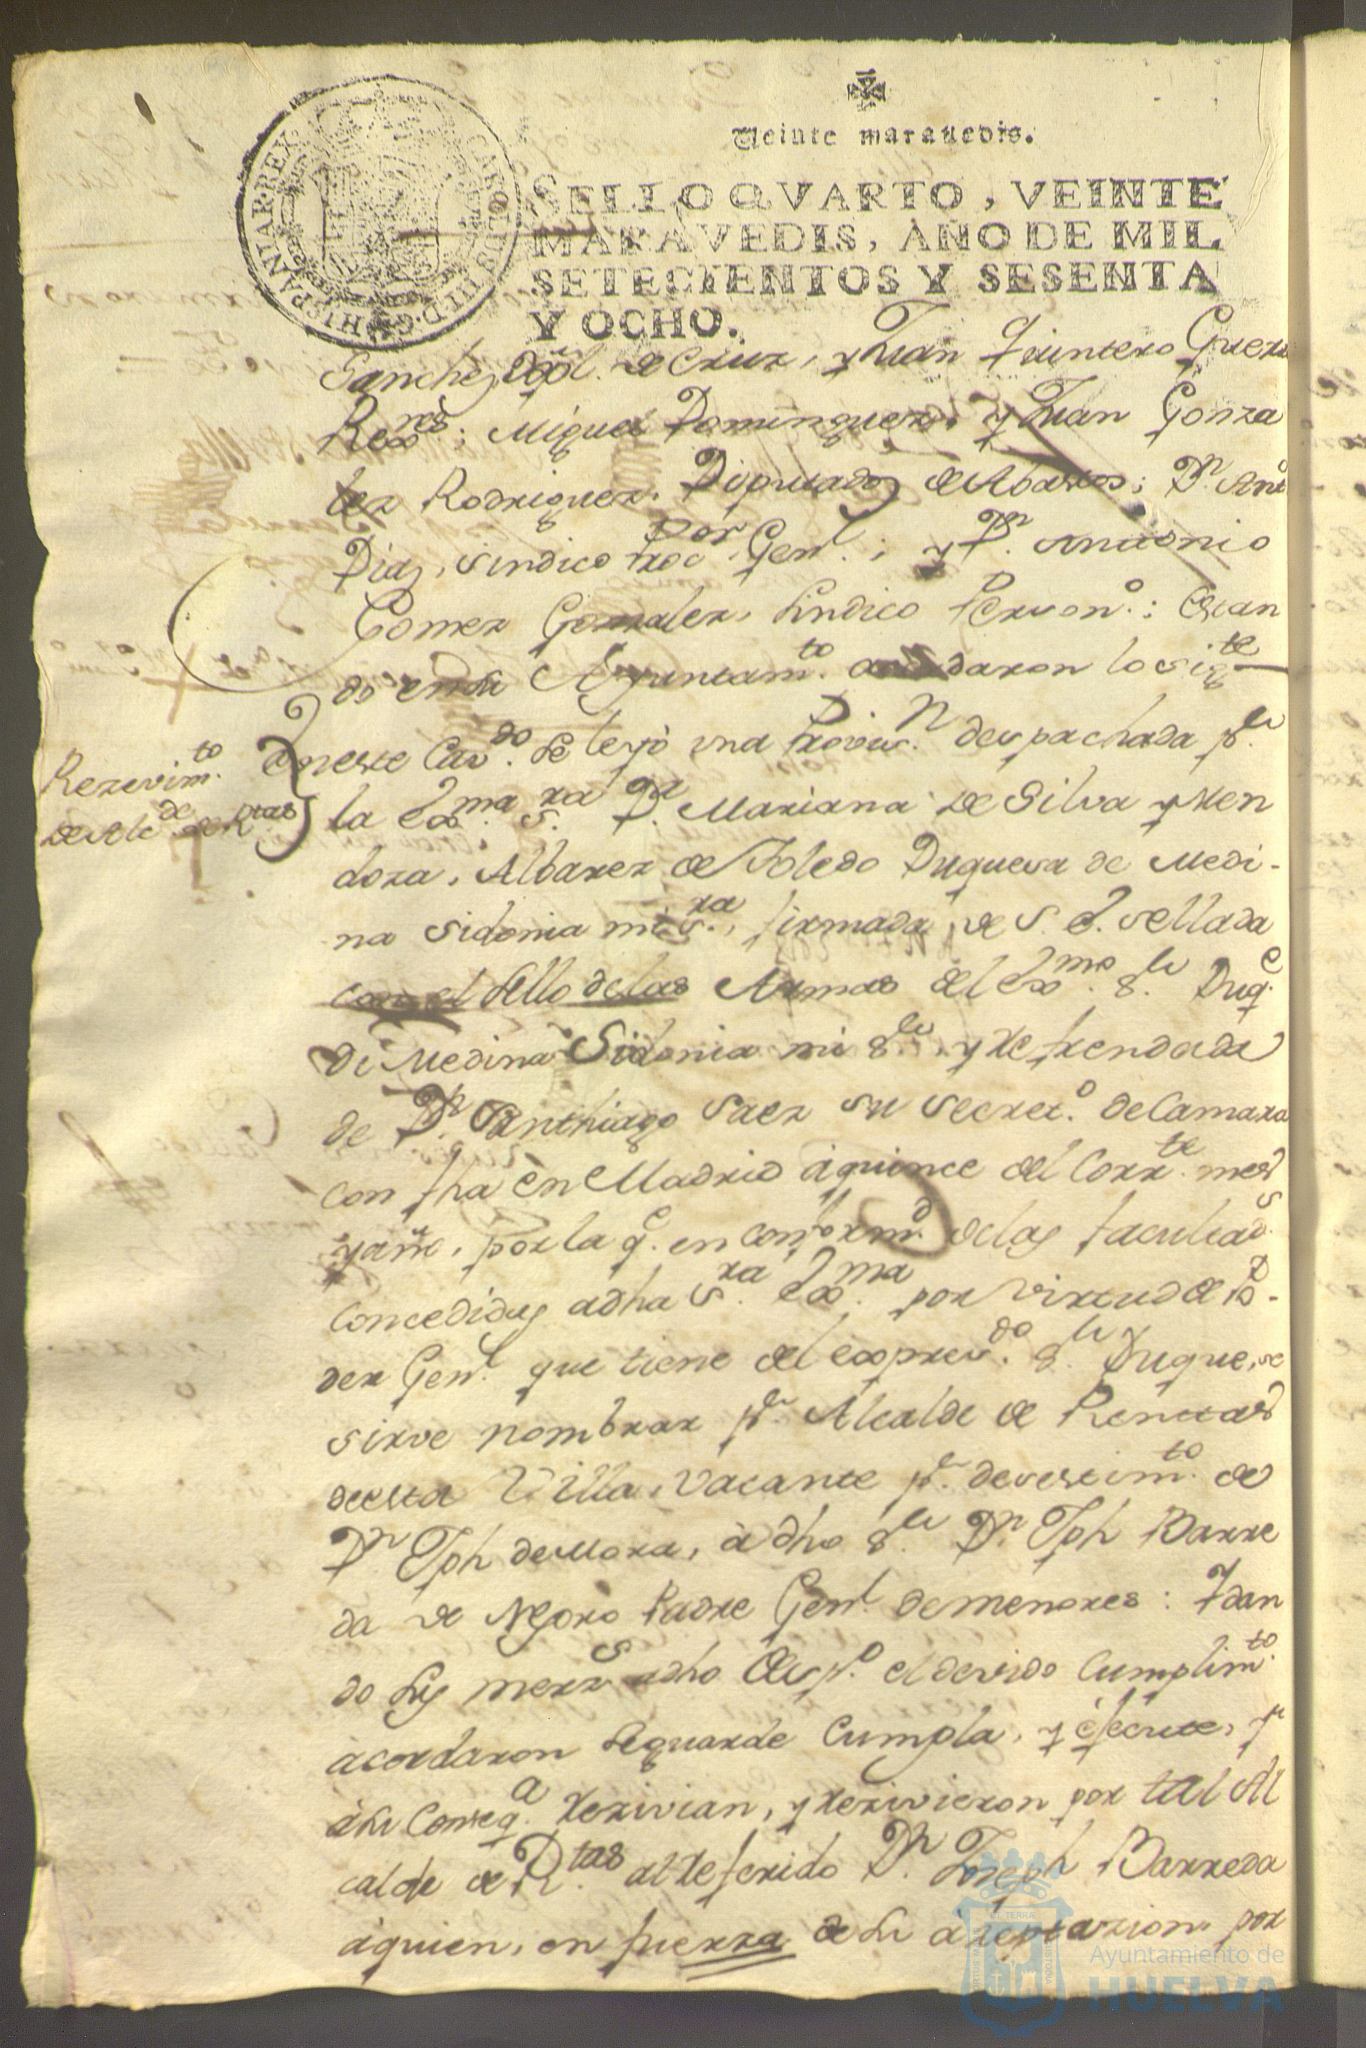 Veinte maravedis.
SELLO QVARTO, VEINTE
MARAVEDIS, AÑO DE MIL
SETECIENTOS Y SESENTA
Y OCHO.
CAROLUS III D. G. HISPANIAR. REX
Sanchez, de Cruz, y Juan Quintero
Rexres: Miguel Dominguez, y Juan Gonza
lez Rodriguez, Diputados de Abastos; Dn. Anto
Diaz, Sindico Procor Genl.; y Dn. Antonio
Gomez Gonzalez, Sindico Person.o: Estan
do en su Ayuntam.to acordaron lo sigte
Rezevim.to
de Alcde. de Rtas
en este Cav.do se leyó una Provis.n despachada pr.
la Exma. S.ra D.a Mariana de Silva y Men
doza, Albarez de Toledo Duquesa de Medi-
na Sidonia mi S.ra, firmada de S. E. sellada
con el sello de las Armas del Exmo. Sr. Duq.e
de Medina Sidonia mi Sr., y Refrendada
de Dn. Santhiago Saez su Secret.o de Camara
con fha en Madrid á quince del Corrte. mes
y año, por la q.e en conform.d de las facultad.s
concedidas a dha S.ra Exma. por virtud de Po-
der Genl. que tiene del expres.do Sr. Duque, se
sirve nombrar pr. Alcalde de Renttas
de esta Villa, vacante pr. desestim.to de
Dn. Jph de Mora, á dho Sr. Dn. Jph Barre
da de Negro Padre Genl. de menores: Y dan
do sus merzs. a dho Desp.o el devido cumplim.to
acordaron se guarde cumpla, y execute, y
á su conseq.a rezivian, y rezivieron por tal Al
calde de R.tas al referido Dn. Joseph Barreda
á quien, en fuerza de su azeptazion, por
Ayuntamiento de
HUELVA